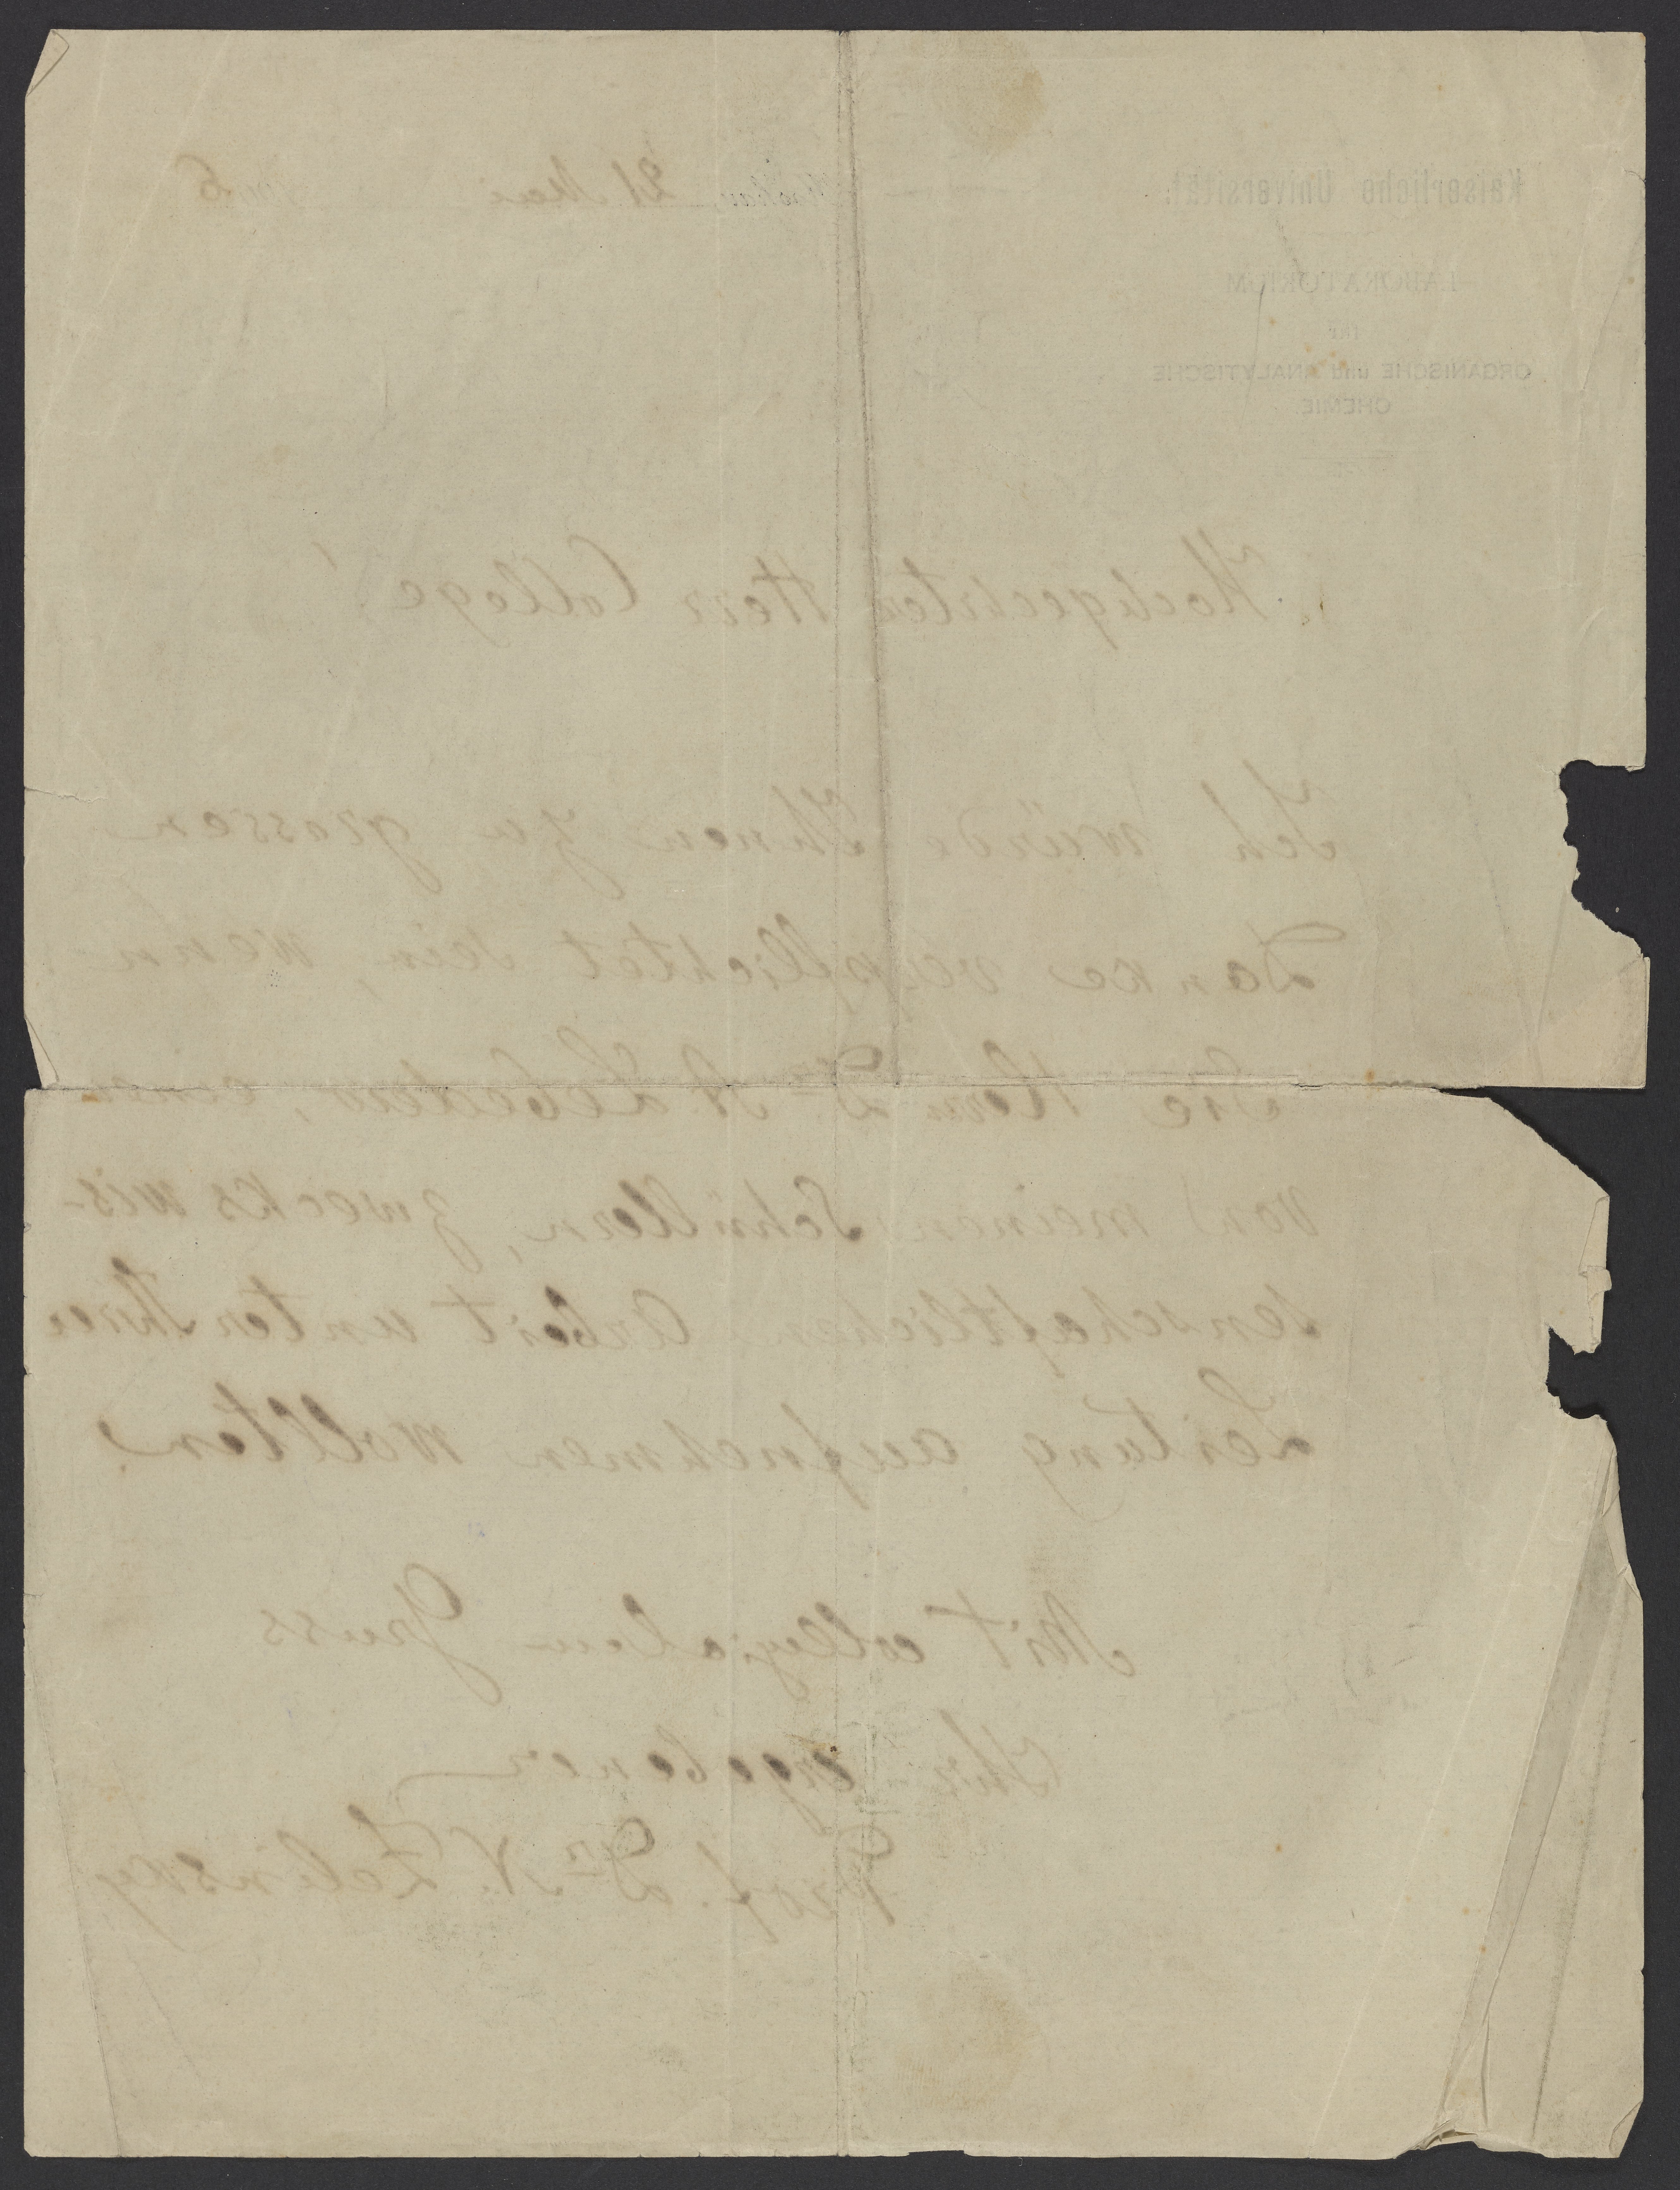 Kaiserliche Universität.
Moskau, 21 Mai
LABORATORIUM
für
ORGANISCHE und ANALYTISCHE
CHEMIE
Hochgeehrter Herr College!
Ich würde Ihnen zu grossem
Danke verpflichtet sein, wenn
Sie Herrn Dr A. Lebedew, einen
von meinen Schüllern, zwecks wis-
senschaftlicher Arbeit unter Ihrer
Leitung aufnehmen wollten.
Mit collegialem Gruss
Ihr ergebener
Prof. Dr N. Zelinsky